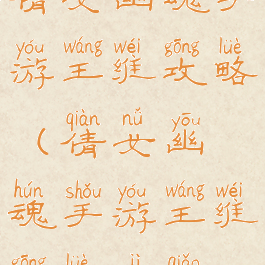 yóu wáng wéi gōng lüè
游王维攻略
qiàn nǚ yōu
(倩女幽
hún shǒu yóu wáng wéi
魂手游王维